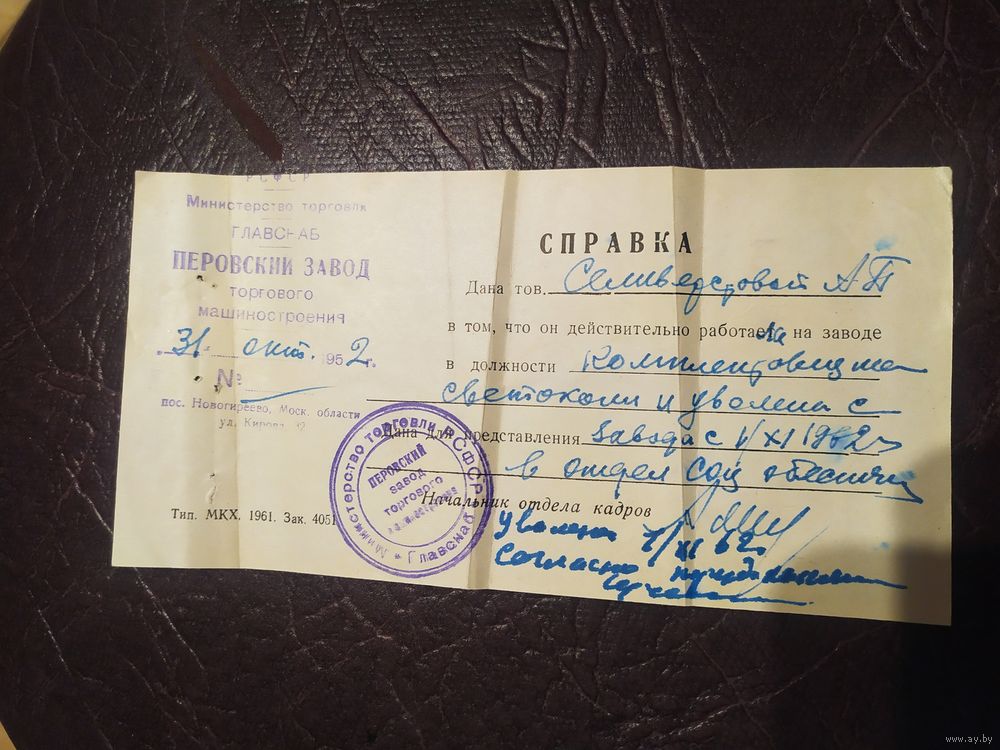 РСФСР
Министерство торговли
ГЛАВСНАБ
ПЕРОВСКИЙ ЗАВОД
торгового
машиностроения
31 окт. 1952 г.
№
пос. Новогиреево, Моск. области
ул. Кирова
СПРАВКА
Дана тов. Селиверстовой А П
в том, что он действительно работает на заводе
в должности Комплектовщица
и уволена с
Дана для представления завода с 1/XI 1962 г
в отдел соц обеспеч
Начальник отдела кадров
Уволена 1/XI 62 г
согласно
Тип. МКХ, 1961. Зак. 4051
Министерство торговли РСФСР * Главснаб
ПЕРОВСКИЙ
завод
торгового
машиностроения
www.ay.by